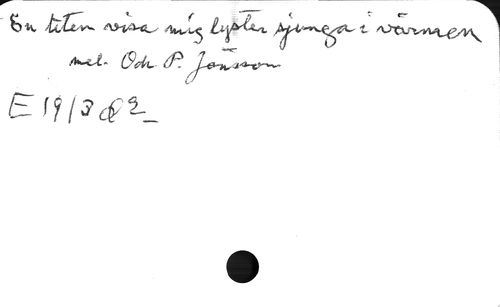 En liten visa mig lyster sjunga i värmen
mel. Och P. Jönsson
E 19/3